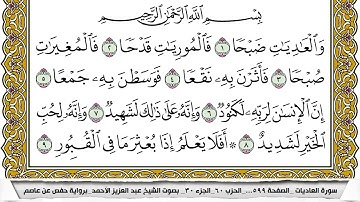 بِسْمِ اللَّهِ الرَّحْمَٰنِ الرَّحِيمِ
وَالْعَادِيَاتِ ضَبْحًا ١ فَالْمُورِيَاتِ قَدْحًا ٢ فَالْمُغِيرَاتِ
صُبْحًا ٣ فَأَثَرْنَ بِهِ نَقْعًا ٤ فَوَسَطْنَ بِهِ جَمْعًا ٥
إِنَّ الْإِنسَانَ لِرَبِّهِ لَكَنُودٌ ٦ وَإِنَّهُ عَلَى ذَٰلِكَ لَشَهِيدٌ ٧ وَإِنَّهُ لِحُبِّ
الْخَيْرِ لَشَدِيدٌ ٨ أَفَلَا يَعْلَمُ إِذَا بُعْثِرَ مَا فِي الْقُبُورِ ٩
سورة العاديات _ الصفحة ٥٩٩ ... الحزب ٦٠_ الجزء ٣٠_ بصوت الشيخ عبد العزيز الأحمد_ برواية حفص عن عاصم